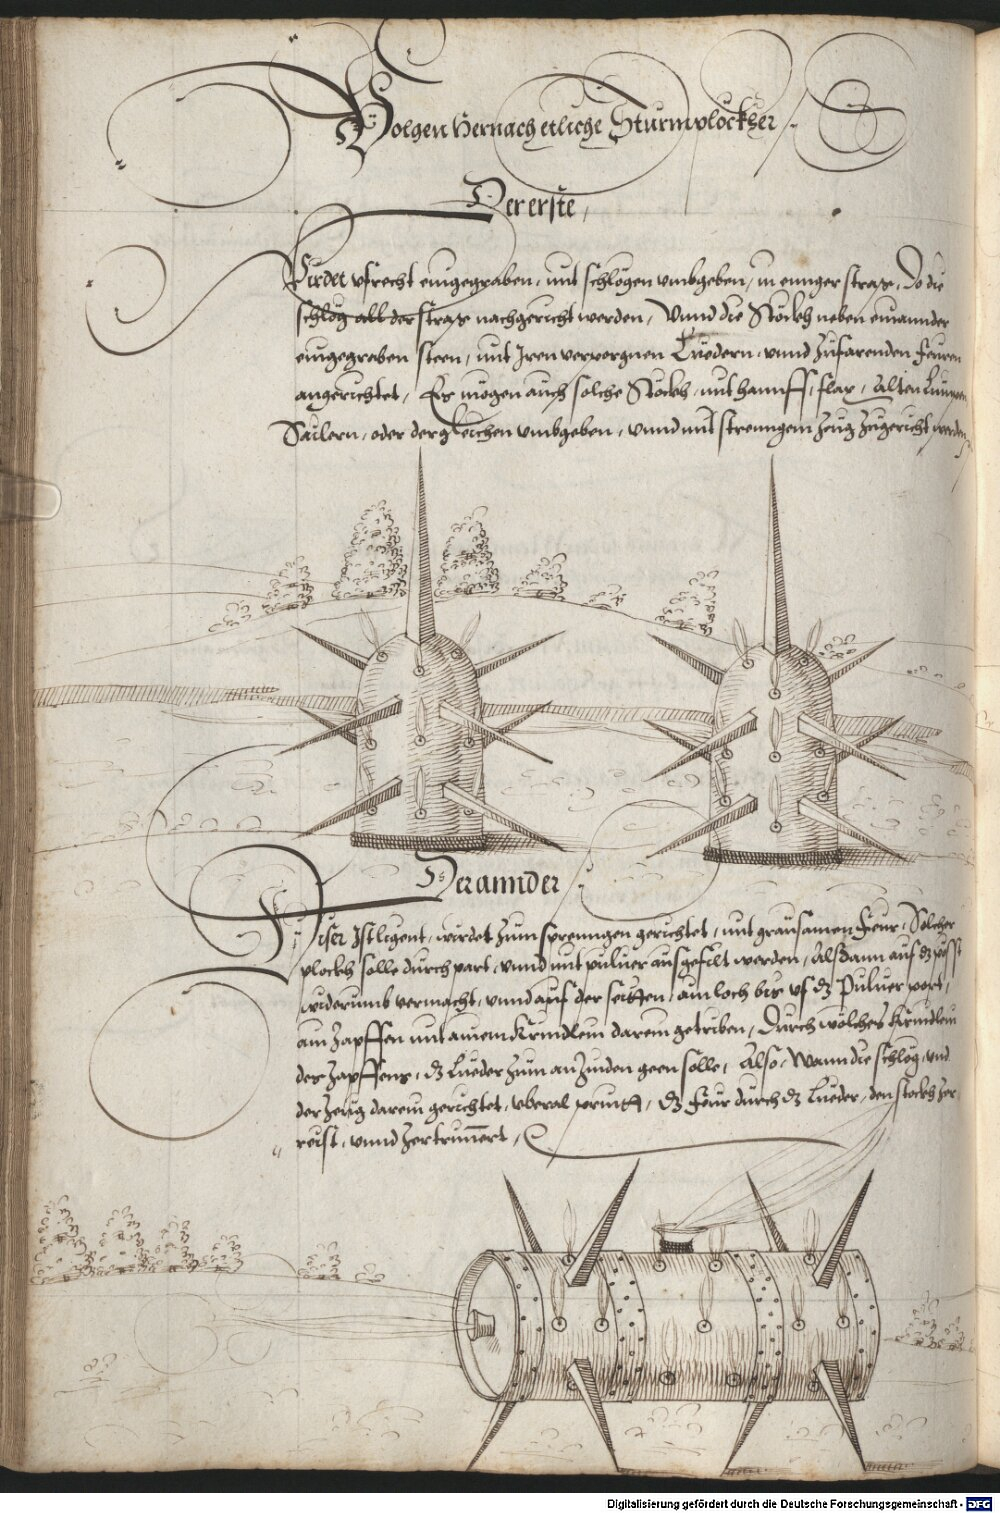 Volgen hernach etliche Sturmplöckher
Der erste,
Würdet vfrecht eingegraben, mit schlögen vmbgeben, in einnger strass, Do die
schlög all der strass nachgericht werden, Vnnd die Stöckh neben einannder
eingegraben steen, mit Iren verporgnen Luedern, vnnd zufarenden Feuren
angerichtet, Es mögen auch solche Stöckh, mit hannff, flax, Alten Lumppen
Sailern, oder dergleichen vmbgeben, vnnd mit strenngem zeug zugericht werden
Der annder
Diser Istligent, würdet zum sprenngen gerichtet, mit grausamen Feur, Solcher
plockh solle durchpart, vnnd mit puluer ausgefilt werden, Alßdann auf dz
widerumb vermacht, vnnd auf der seitten, ain loch bis vf dz Puluer port,
ain Zapffen mit ainem Krindlein darein getriben, Durch wölches Krindlein
des Zapffens, dz Lueder zum anzinden geen solle, Also, Wann die schlög, vnd
der zeug darein gerichtet, vberal printt, dz Feur durch dz Lueder, den stockh zer
reist, vnnd zertrümert,
Digitalisierung gefördert durch die Deutsche Forschungsgemeinschaft - DFG